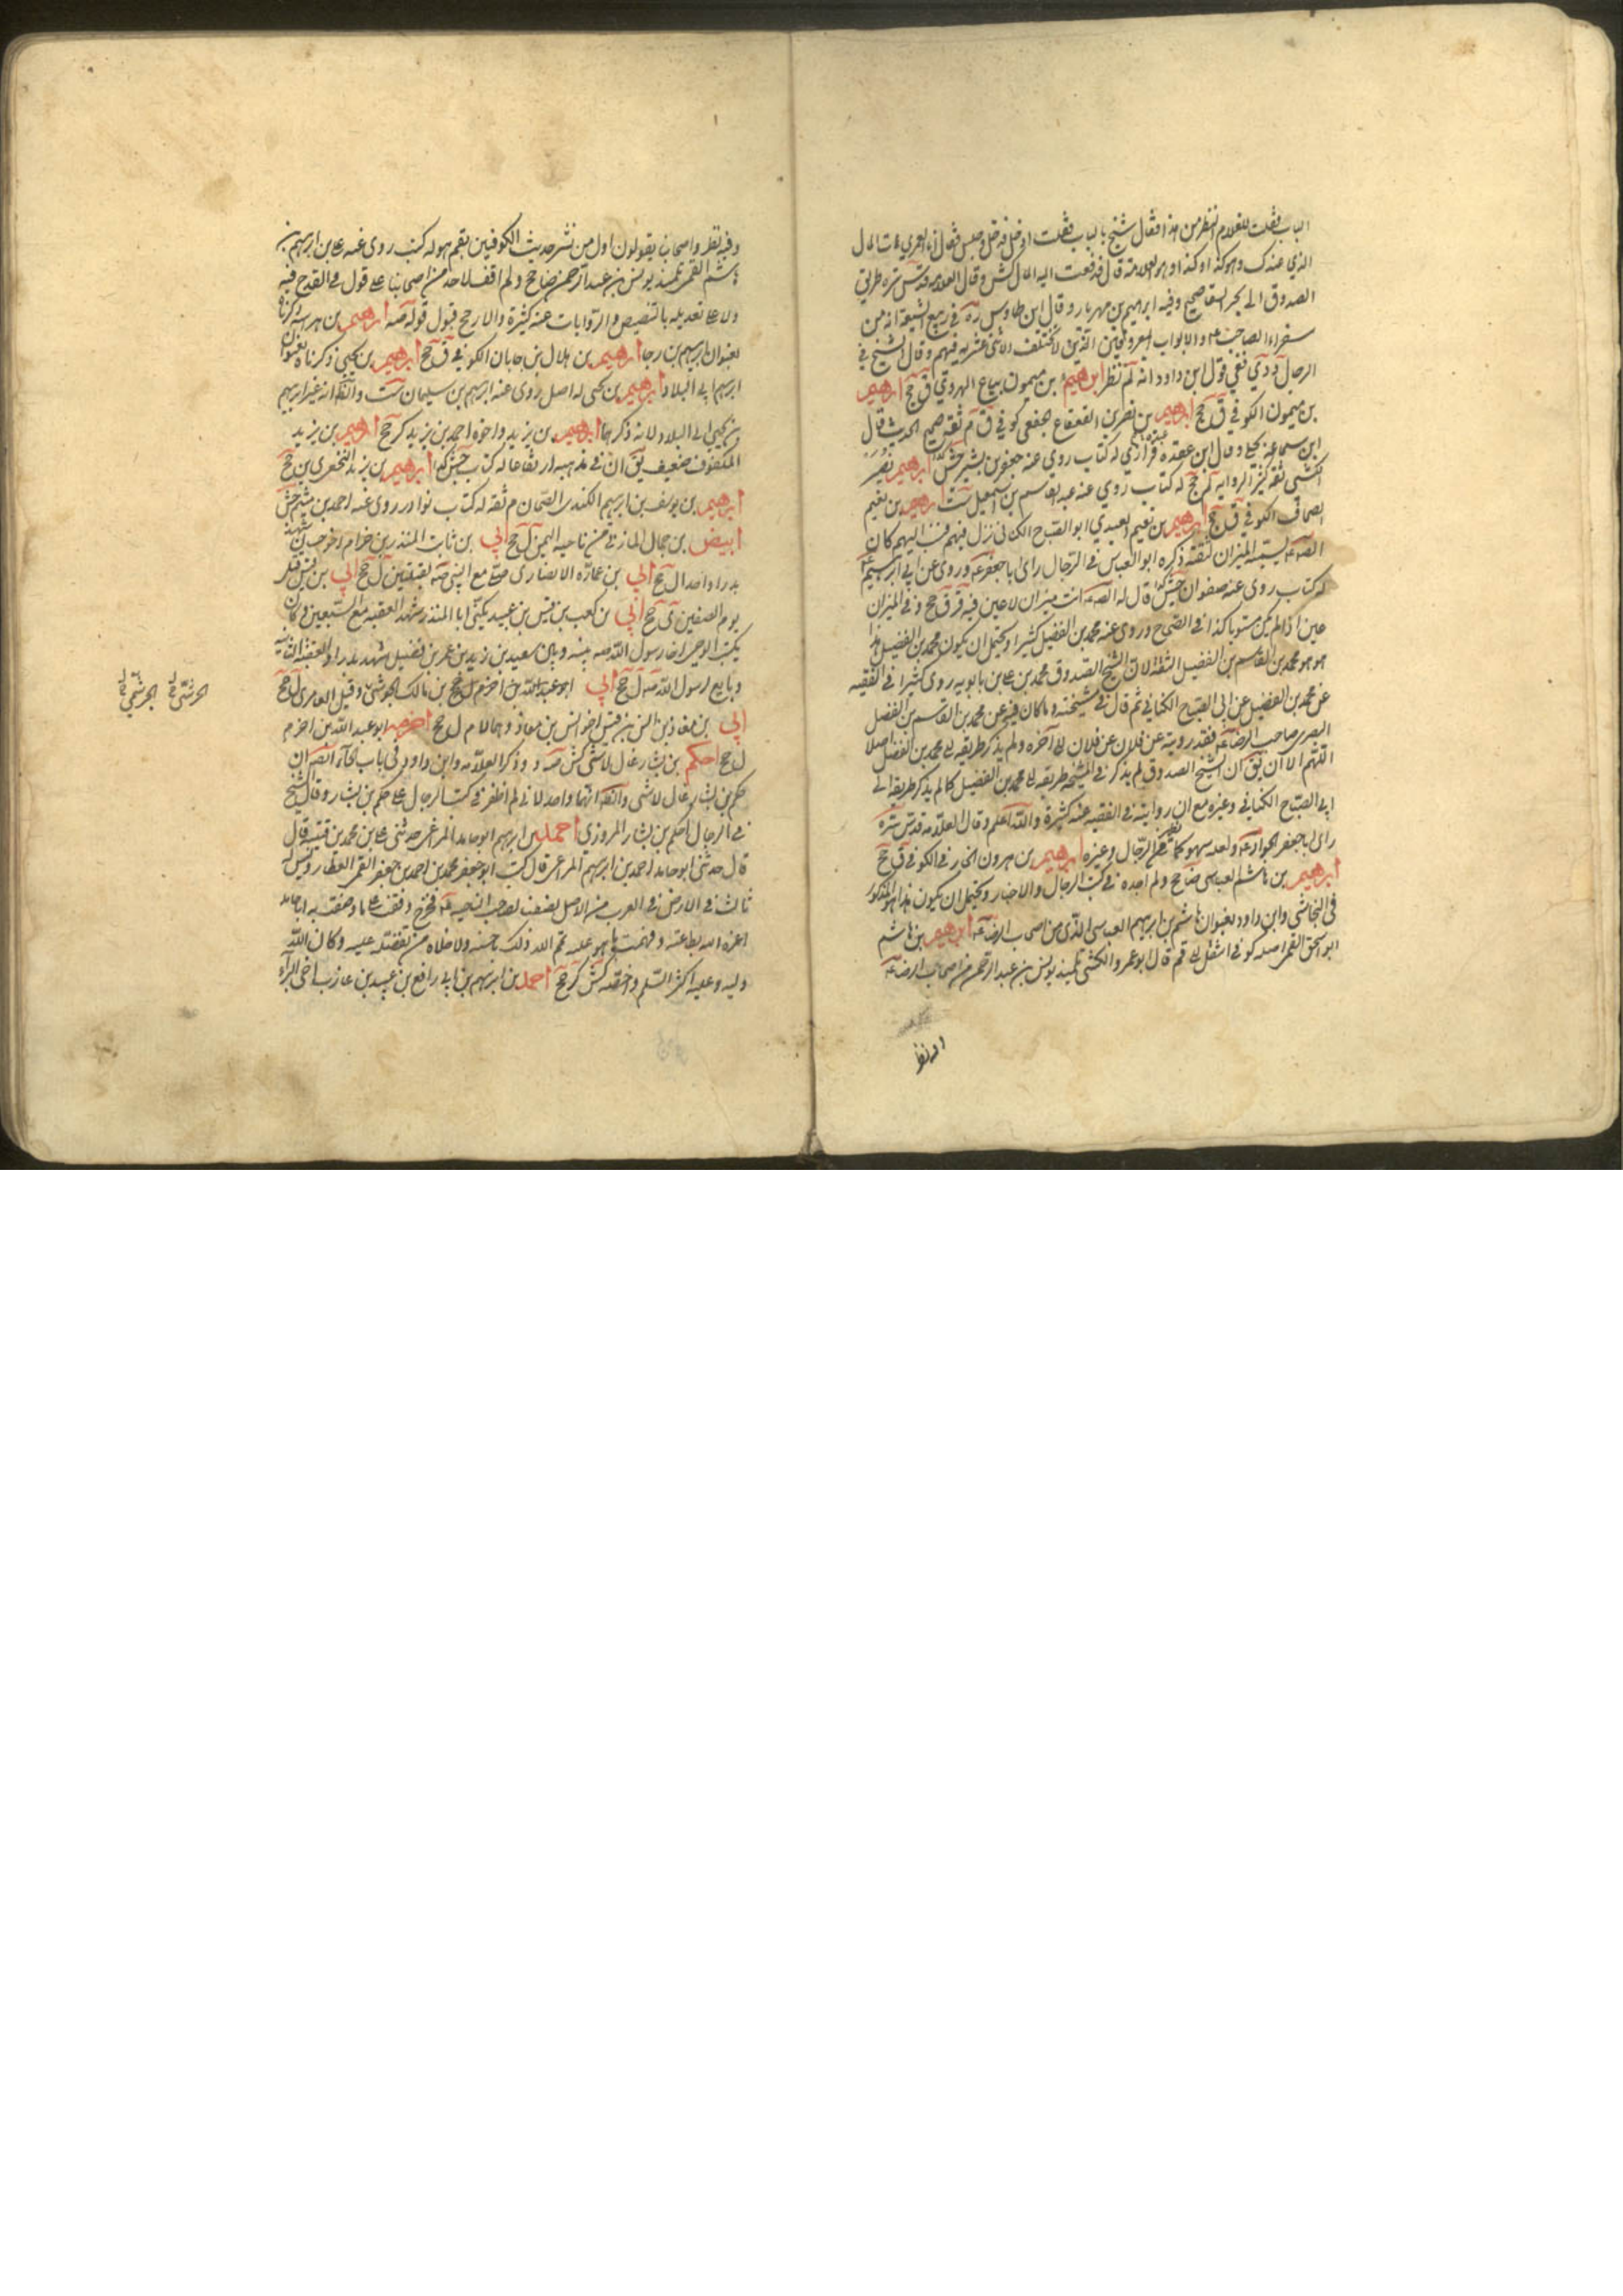 الباب فقلت للغلام انظر من هذا فقال شيخ بالباب فقلت ادخل فدخل وجلس فقال انا العمري هات المال
الذي عندك وهو كذا وكذا ومعه العلامة قال فدفعت اليه المال كش وقال العلامه قدس سره طريق
الصدوق الى بحر السقا صحيح وفيه ابراهيم بن مهزيار وقال ابن طاوس ره في ربيع الشيعة انه من
سفراء الصاحب ع والابواب المعروفين الذين لا تختلف الاثنى عشرية فيهم وقال الشيخ في
الرجال دي نفي قول ابن داود انه لم نظر ابرهيم بن ميمون بياع الهروي ق جخ ابرهيم
بن ميمون الكوفي ق جخ ابرهيم بن نصر بن القعقاع الجعفي كوفي ق م ثقة صحيح الحديث قال
ابن سماعة بجلي وقال ابن عقدة فزاري له كتاب روى عنه جعفر بن بشير جش ابرهيم بن نصير
الكشى ثقة كثير الرواية لم جخ له كتاب روي عنه القاسم بن اسمعيل ست ابرهيم بن نعيم
الصحاف الكوفي ق جخ ابرهيم بن نعيم العبدي ابو الصباح الكناني نزل فيهم فنسب اليهم كان
الصادق ع يسميه الميزان لثقته ذكره ابو العباس في الرجال راى ابا جعفر ع وروى عن ابي ابرهيم ع
له كتاب روى عنه صفوان جش قال له الصادق ع انت ميزان لا عين فيه قر ق جخ و في الميزان
عين اذا لم يكن مستويا كذا في الصحاح وروى عنه محمد بن الفضيل كثيرا ويحتمل ان يكون محمد بن الفضيل هذا
هو محمد بن القاسم بن الفضيل الثقة لان الشيخ الصدوق محمد بن علي بن بابويه روى كثيرا في الفقيه
عن محمد بن الفضيل عن ابي الصباح الكناني ثم قال في مشيخته وما كان فيه عن محمد بن القاسم بن الفضيل
البصرى صاحب الرضا ع فقد رويته عن فلان عن فلان الى آخره ولم يذكر طريقه الى محمد بن الفضيل اصلا
اللهم الا ان يق ان الشيخ الصدوق لم يذكر في المشيخة طريقه الى محمد بن الفضيل كما لم يذكر طريقه الى
ابي الصباح الكناني وغيره مع ان روايته في الفقيه عنه كثيرة والله اعلم وقال العلامه قدس سره
راى ابا جعفر الجواد ع ولعله سهو كما يظهر من الرجال وغيره ابرهيم بن هرون الخارفي الكوفي ق جخ
ابرهيم بن هاشم العباسي ضا جخ ولم اجده في كتب الرجال والاخبار ويحتمل ان يكون هذا هو المذكور
في النجاشي وابن داود بعنوان هاشم بن ابرهيم العباسى الذى من اصحاب الرضا ع ابرهيم بن هاشم
ابو اسحق القمى اصله كوفى انتقل الى قم قال ابو عمرو الكشى تلميذ يونس بن عبد الرحمن من اصحاب الرضا ع
وفيه نظر
وفيه نظر واصحابنا يقولون اول من نشر حديث الكوفيين بقم هو له كتب روى عنه علي بن ابرهيم بن
هاشم القمى تلميذ يونس بن عبد الرحمن ضا جخ ولم اقف لاحد من اصحابنا على قول في القدح فيه
ولا على تعديله بالتنصيص والروايات عنه كثيرة والارجح قبول قوله صه ابرهيم بن هراسه ذكرناه
بعنوان ابرهيم بن رجا ابرهيم بن هلال بن جابان الكوفي ق جخ ابرهيم بن يحيى ذكرناه بعنوان
ابرهيم ابي البلاد ابرهيم بن يحيى له اصل روى عنه ابرهيم بن سليمان ست والظ انه غير ابرهيم
بن يحيى ابي البلاد لانه ذكرهما ابرهيم بن يزيد واخوه احمد بن يزيد كر جخ ابرهيم بن يزيد
المكفوف ضعيف يق ان في مذهبه ارتفاعا له كتاب جش ابرهيم بن يزيد النخعي ين جخ
ابرهيم بن يوسف بن ابرهيم الكندى الطحان م ثقة له كتاب نوادر روى عنه احمد بن ميثم جش
ابيض بن حمال المازني من ناحيه اليمن ل جخ ابي بن ثابت المنذر بن حرام اخو حسان شهد
بدرا واحدا ل جخ ابي بن عمارة الانصارى صلى مع النبي ص القبلتين ل جخ ابي بن قيس قتل
يوم الصفين ى جخ ابي بن كعب بن قيس بن عبيد يكنى ابا المنذر شهد العقبه مع السبعين وكان
يكتب الوحى
وبايع لرسول الله ص ل جخ ابي ابو عبد الله بن اخرم ل جخ بن مالك الجوشى وقيل العامري ل جخ
ابي بن معاذ بن انس بن قيس اخو انس بن معاذ وهما لام ل جخ اخرم ابو عبد الله بن اخرم
ل جخ احكم بن بشار غال لا شى كش صه د وذكر العلامه وابن داود في باب الحاء ايضا ان
حكم بن بشار غال لا شى والظ انهما واحد لاني لم اظفر في كتب الرجال على حكم بن بشار وقال الشيخ
في الرجال احكم بن بشار المروزي احمد بن ابرهيم ابو حامد المراغى حدثني علي بن محمد بن قتيبه قال
قال حدثني ابو حامد احمد بن ابرهيم المراغى قال كتب ابو جعفر محمد بن احمد بن جعفر القمى العطار وليس له
ثالث في الارض في القرب من الاصل يصفنا لصاحب الناحية ع فخرج وقفت على ما وصفت به ابا حامد
اعزه الله بطاعته وفهمت ما هو عليه تمم الله ذلك باحسنه ولا اخلاه من تفضله عليه وكان الله
وليه وعليه اكثر السلم واخصه كش كر جخ احمد بن ابرهيم بن ابي رافع بن عبيد بن عازب اخى البراء